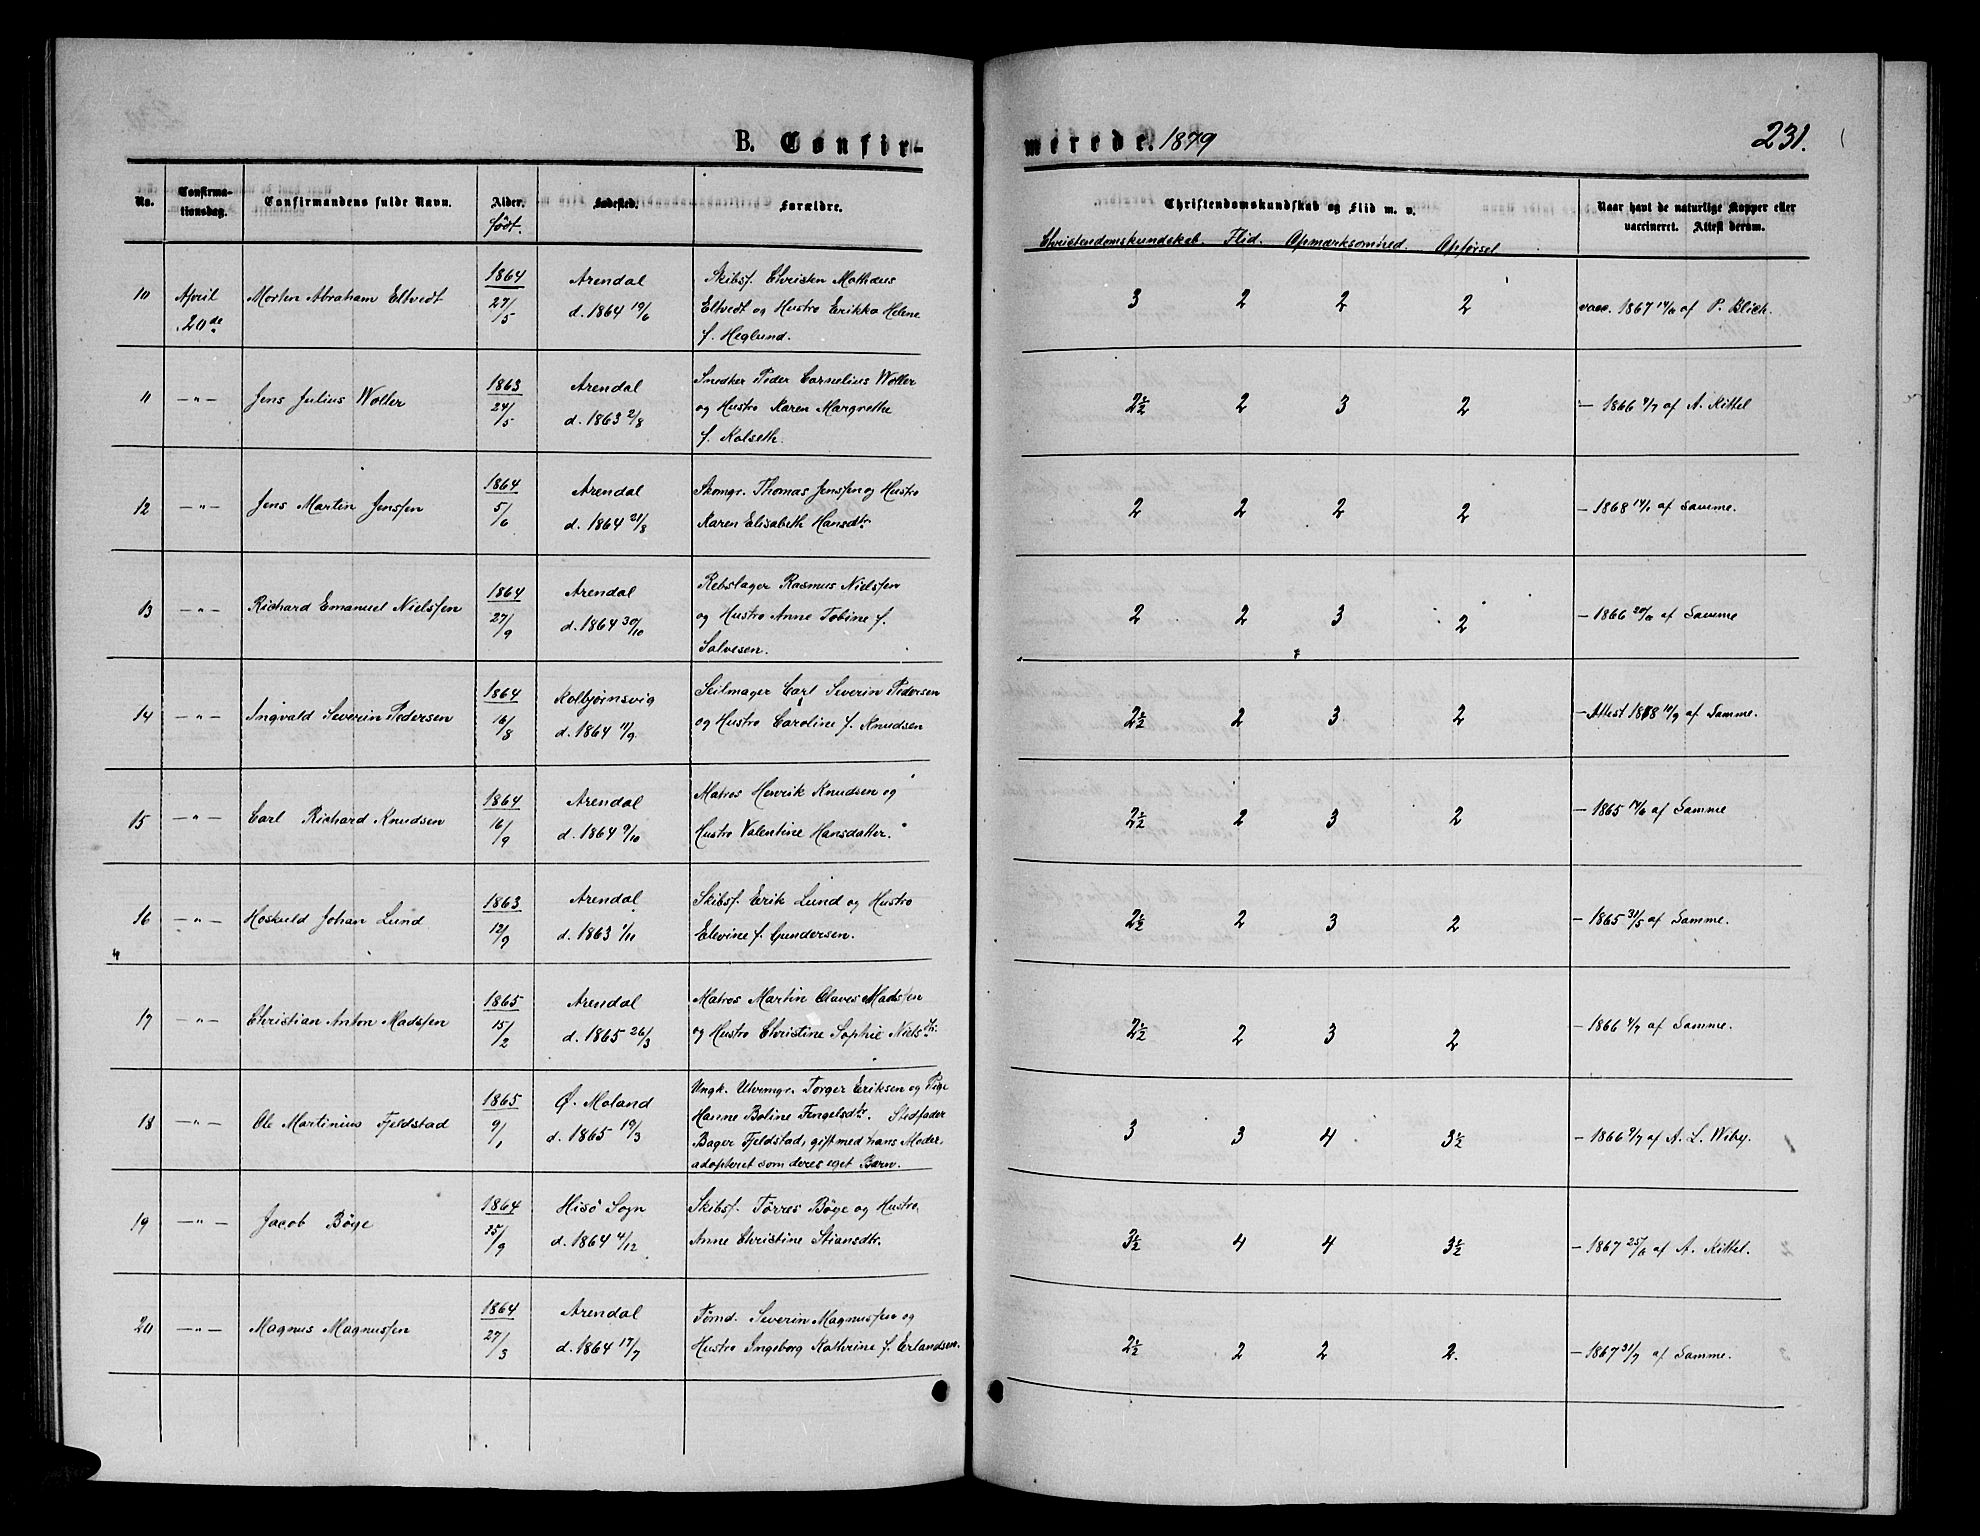 B. Confir-
merede. 1879
231.
No.
Confirma-
tionsdag.
Confirmandens fulde Navn.
Alder.
født.
Fødested.
Forældre.
Christendomskundskab og Flid m. v.
Christendomskundskab. Flid. Opmærksomhed. Opførsel
Naar havt de naturlige Kopper eller
vaccineret. Attest derom.
10 April 20de Morten Abraham Eltvedt 1864 27/5 Arendal d. 1864 19/6
Skibsf. Christen Mathæus
Eltvedt og Hustro Erikka Helene
f. Heglund.
3 2 2 2 vacc. 1867 af P. Blich.
11 —"— Jens Julius Woller 1863 24/5 Arendal d. 1863 2/8
Snedker Peder Cornelius Woller
og Hustro Karen Margrethe
f. Kolseth.
2½ 2 3 2 — 1866 4/7 af A. Kittel
12 —"— Jens Martin Jenssen 1864 5/6 Arendal d. 1864 21/8
Skomgr. Thomas Jenssen og Hustro
Karen Elisabeth Hansdtr.
2 2 2 2 — 1868 af Samme.
13 —"— Richard Emanuel Nielssen 1864 27/9 Arendal d. 1864 30/10
Rebslager Rasmus Nielssen
og Hustro Anne Tobine f.
Salvesen.
2 2 3 2 — 1866 af Samme
14 —"— Ingvald Severin Pedersen 1864 16/8 Kolbjørnsvig d. 1864 11/9
Seilmager Carl Severin Pedersen
og Hustro Caroline f. Knudsen
2½ 2 3 2 — Attest 1868 10/9 af Samme.
15 —"— Carl Richard Knudsen 1864 16/9 Arendal d. 1864 9/10
Matros Henrik Knudsen og
Hustro Valentine Hansdatter.
2½ 2 3 2 — 1865 af Samme
16 —"— Hoskuld Johan Lund 1863 12/9 Arendal d. 1863 1/11
Skibsf. Erik Lund og Hustro
Elevine f. Gundersen.
2½ 2 3 2 — 1865 31/5 af Samme.
17 —"— Christian Anton Madssen 1865 15/2 Arendal d. 1865 26/3
Matros Martin Olaves Madssen
og Hustro Christine Sophie Nielsdtr.
2½ 2 3 2 — 1866 4/7 af Samme.
18 —"— Ole Martinius Fjeldstad 1865 9/1 Ø. Moland d. 1865 19/3
Ungk. Torger Eriksen og Pige
Hanne Boline Fengelsdtr. Stedfader
Bager Fjeldstad, gift med hans Moder,
adopteret som deres eget Barn.
3 3 4 3½ — 1866 9/7 af A. L. Wiby.
19 —"— Jacob Bøge 1864 25/9 Hisø Sogn d. 1864 4/12
Skibsf. Tørres Bøge og Hustro
Anne Christine Stiansdtr.
3½ 4 4 3½ — 1867 af A. Kittel.
20 —"— Magnus Magnussen 1864 27/3 Arendal d. 1864 17/7
Tømd. Severin Magnussen og
Hustro Ingeborg Kathrine f. Erlandsen.
2½ 2 2 2. — 1867 31/7 af Samme.